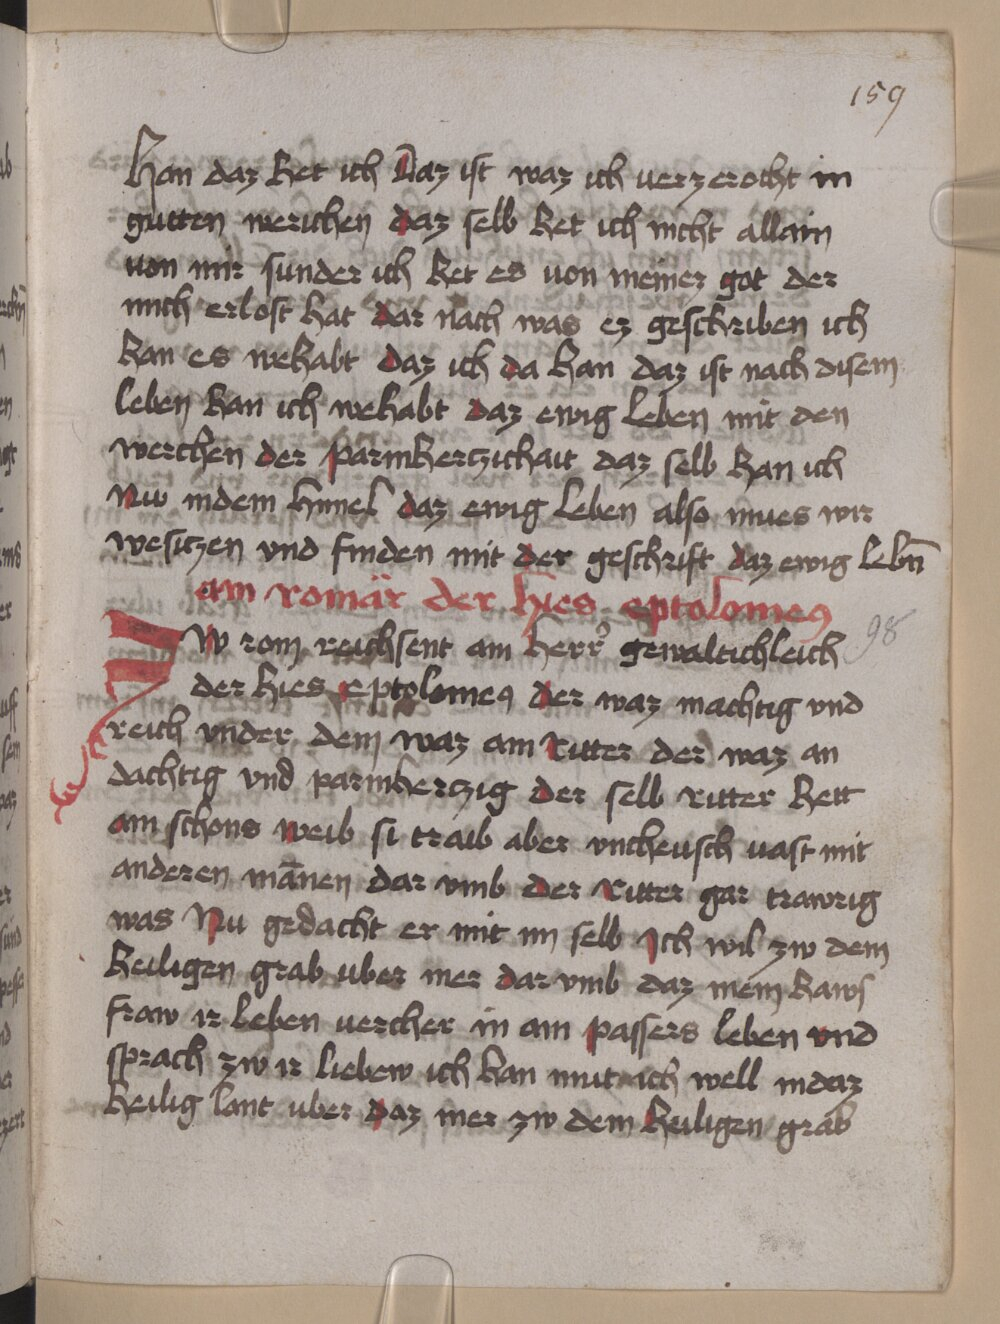 159
han daz het ich Daz ist waz ich uerzerocht in
gutten werichen daz selb het ich nicht allain
von mir sunder ich het es von meiner got der
mich erlost hat dar nach was ez geschriben ich
han es wehabt daz ich da han daz ist nach disem
leben han ich wehabt daz ewig leben mit den
werchen der parmhertzichait daz selb han ich
Nw indem himel daz ewig leben also mues wir
wesitzen vnd finden mit der geschrift daz ewig lebn̄
ain romär der hies eptolomeꝰ
98
Zw rom reichsent ain herr gewaltichleich
der hies eptolomeꝰ der waz machtig vnd
reich vnder dem waz ain ritter der waz an
dachtig vnd parmhertzig der selb ritter hett
ain schons weib si traib aber vncheusch uast mit
anderen man̄en dar vmb der ritter gar trawrig
was Nu gedacht er mit im selb Ich wil zw dem
heiligen grab uber mer dar vmb daz mein haws
fraw ir leben vercher in ain passers leben vnd
sprach zw ir liebew ich han mut ich well indaz
heilig lant uber daz mer zw dem heiligen grab